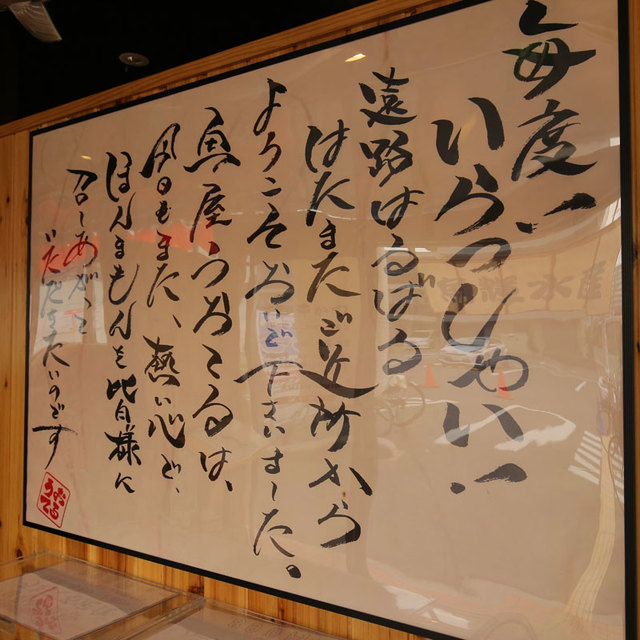 毎度!!
いらっしゃい!!
遠路はるばる
はたまたご近所から
ようこそおいで下さいました。
魚屋うおてるは、
今日もまた、熱い心で、
ほんまもんを皆様に
召しあがって
いただきたいのです